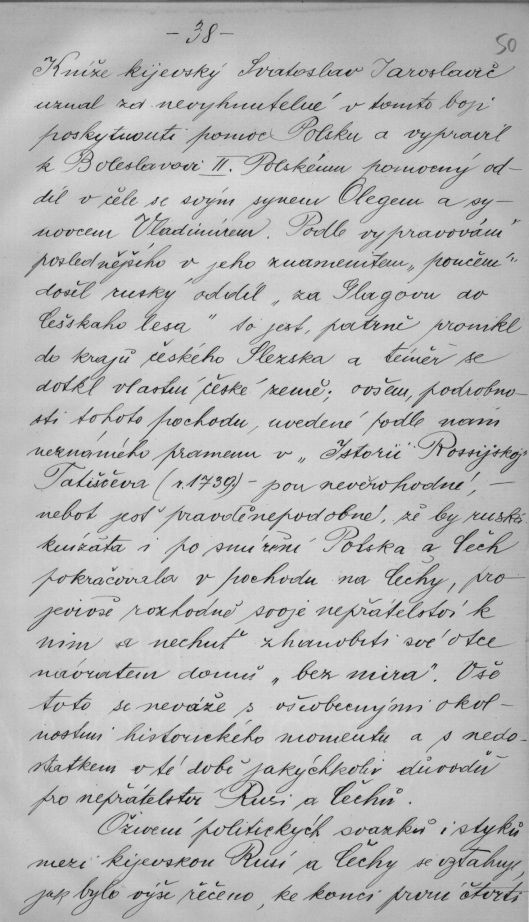 – 38 –
50
Kníže kijevský Svatoslav Jaroslavič
uznal za nevyhnutelné v tomto boji
poskytnouti pomoc Polsku a vypravil
k Boleslavovi II. Polskému pomocný od-
díl v čele se svým synem Olegem a sy-
novcem Vladimírem. Podle vypravování
poslednějšího v jeho znamenitém „poučení“
došel ruský oddíl „za Glagovu do
Češskaho lesa“ to jest, patrně pronikl
do krajů českého Slezska a téměř se
dotkl vlastní české země; ovšem, podrobno-
sti tohoto pochodu, uvedené podle nám
neznámého pramenu v „Istorii Rossijskoj“
Tatiščeva (r. 1739) – jsou nevěrohodné, –
neboť jest pravděnepodobné, že by ruská
knížata i po smíření Polska a Čech
pokračovala v pochodu na Čechy, pro-
jevivše rozhodně svoje nepřátelství k
nim a nechuť zhanobiti své otce
návratem domů „bez mira“. Vše
toto se neváže s všeobecnými okol-
nostmi historického momentu a s nedo-
statkem v té době jakýchkoliv důvodů
pro nepřátelství Rusi a Čechů.
Oživení politických svazků i styků
mezi kijevskou Rusí a Čechy se vztahuje,
jak bylo výše řečeno, ke konci první čtvrti